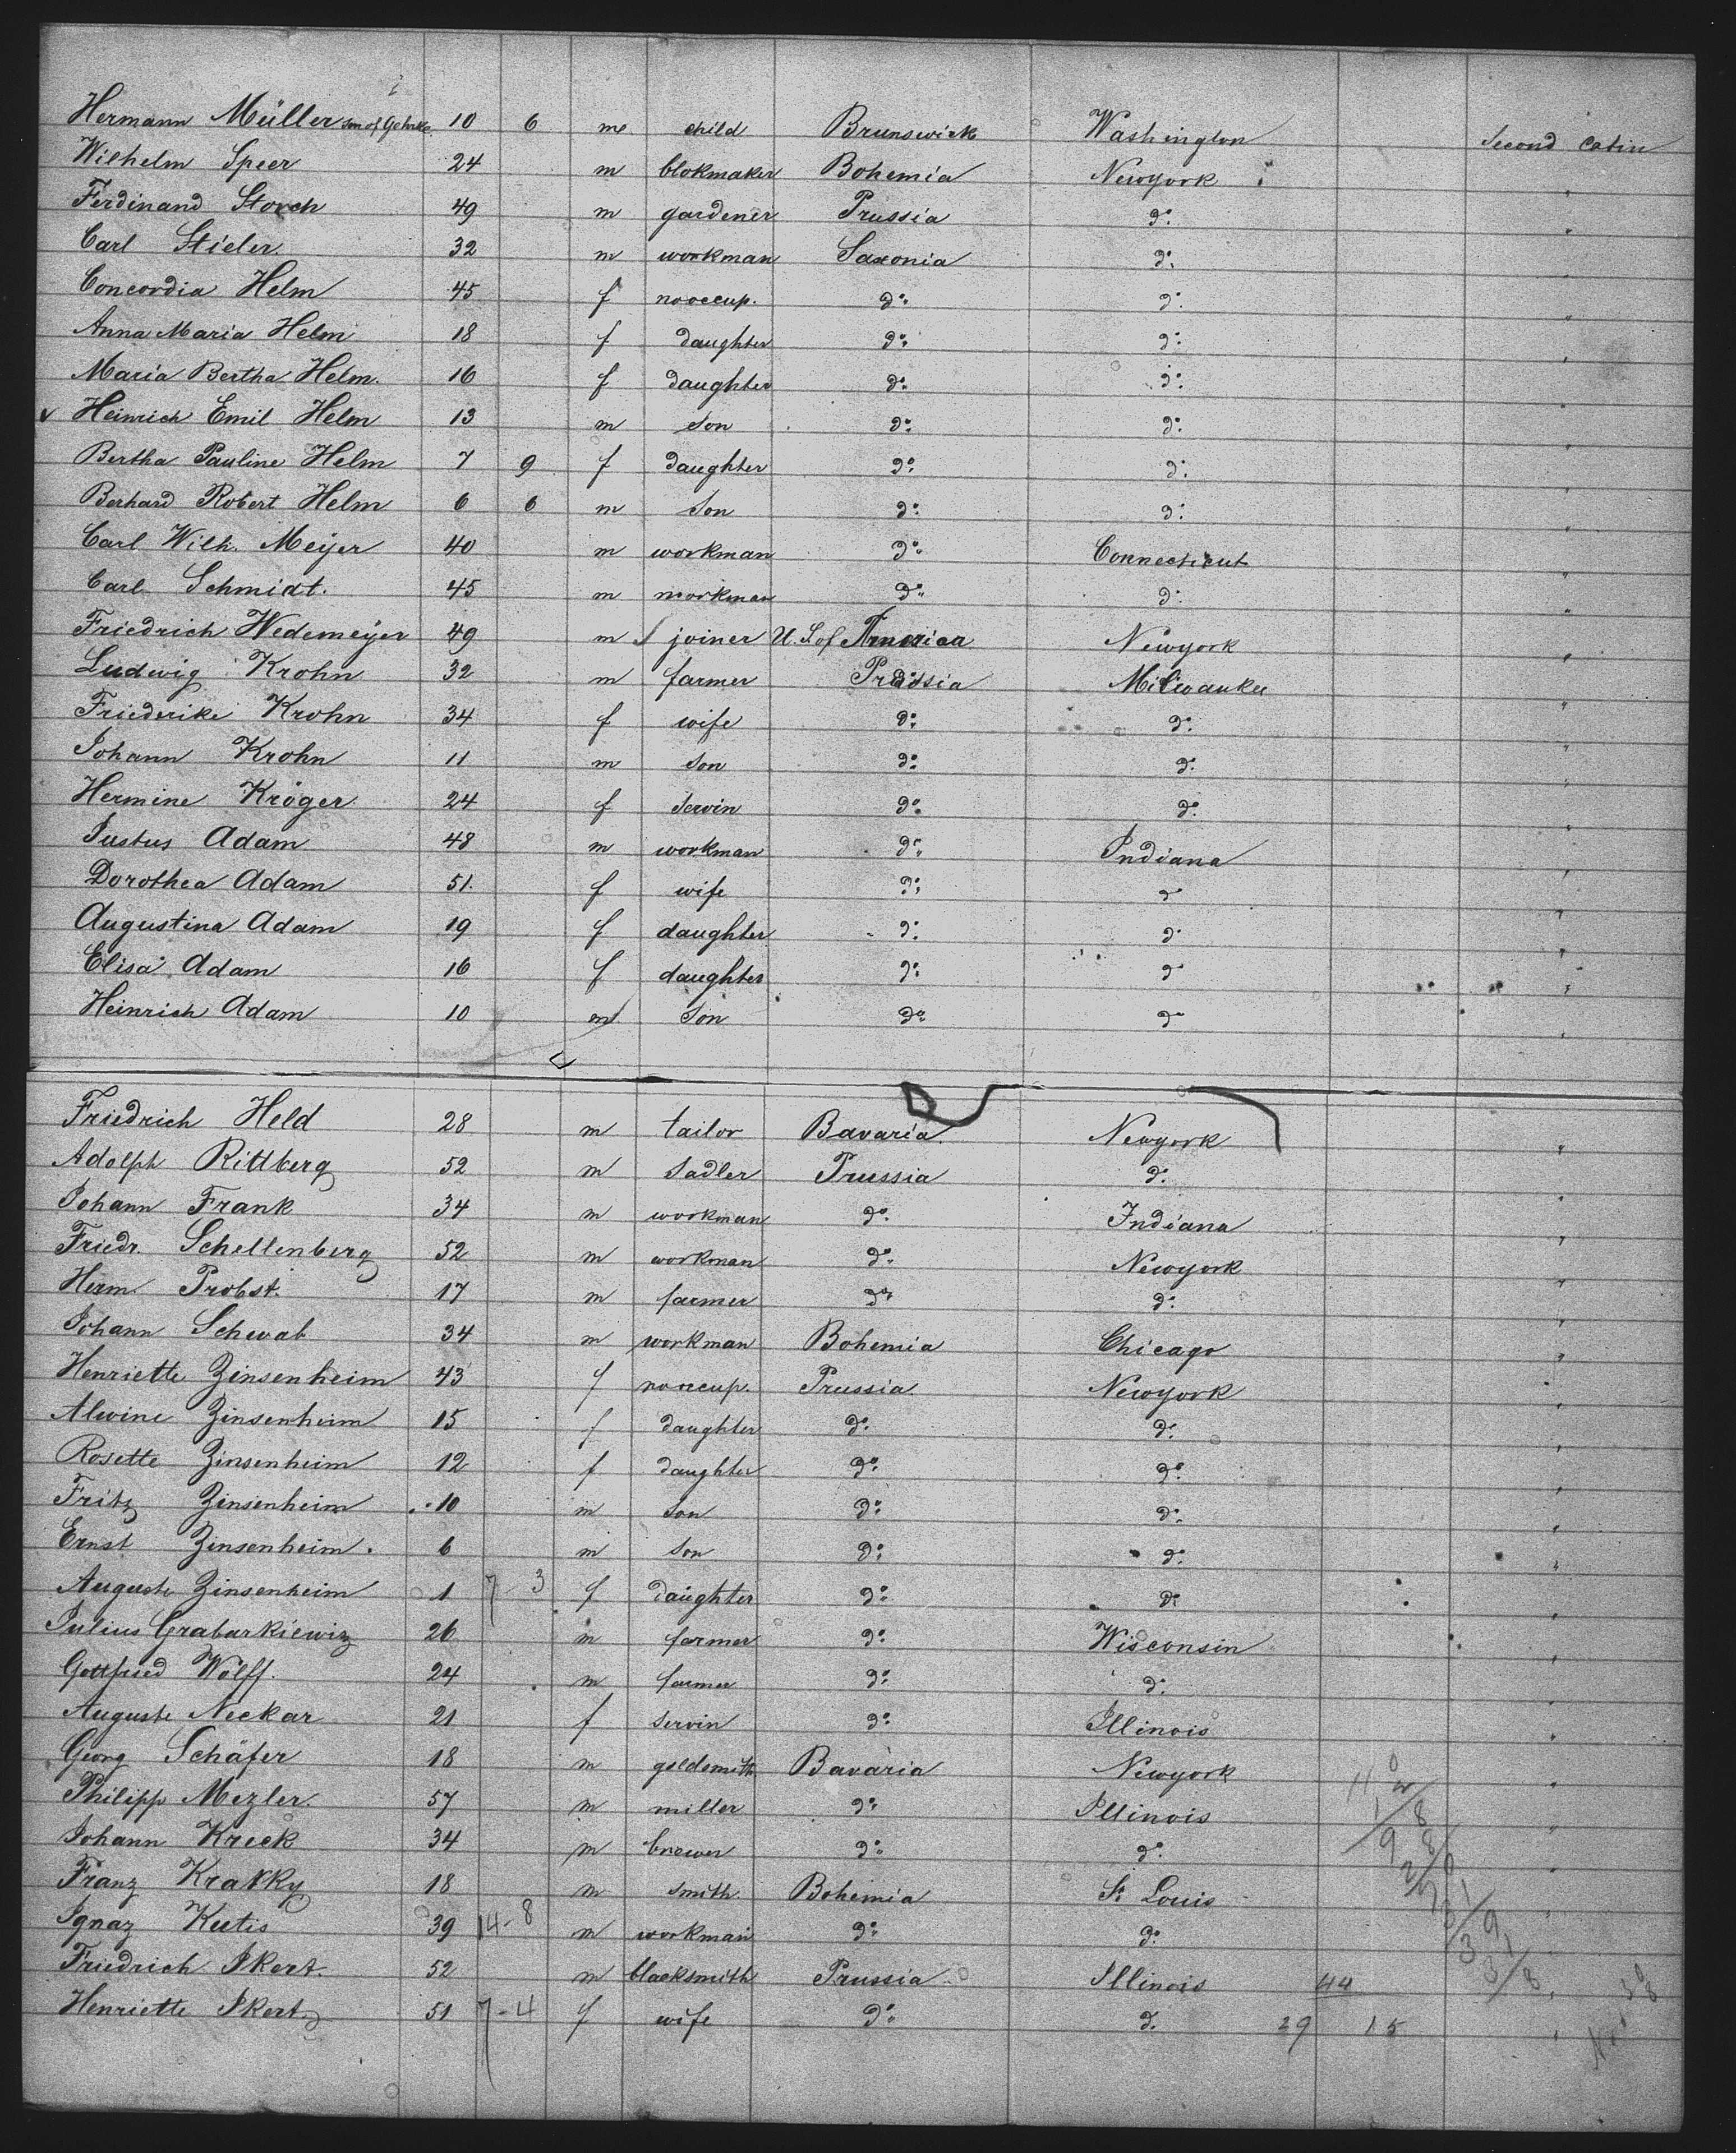 Hermann Müller son of Gehrke 10 6 m child Brunswick Washington Second Cabin
Wilhelm Speer 24 m blokmaker Bohemia Newyork "
Ferdinand Storch 49 m gardener Prussia do "
Carl Stieler 32 m workman Saxonia do "
Concordia Helm 45 f no occup. do do "
Anna Maria Helm 18 f daughter do do "
Maria Bertha Helm. 16 f daughter do do "
v Heinrich Emil Helm 13 m son do do "
Bertha Pauline Helm 7 9 f daughter do do "
Berhard Robert Helm 6 6 m son do do "
Carl Wilh. Meijer 40 m workman do Connecticut "
Carl Schmidt. 45 m workman do do "
Friedrich Wedemeijer 49 m joiner U. S of America Newyork "
Ludwig Krohn 32 m farmer Prussia Milwaukee "
Friederike Krohn 34 f wife do do "
Johann Krohn 11 m son do do "
Hermine Kröger 24 f servin do do "
Justus Adam 48 m workman do Indiana "
Dorothea Adam 51. f wife do do "
Augustina Adam 19 f daughter do do "
Elisa Adam 16 f daughter do do "
Heinrich Adam 10 m son do do "
Friedrich Held 28 m tailor Bavaria Newyork "
Adolph Rittberg 52 m sadler Prussia do "
Johann Frank 34 m workman do Indiana "
Friedr. Schellenberg 52 m workman do Newyork "
Herm. Probst. 17 m farmer do do "
Johann Schwab 34 m workman Bohemia Chicago "
Henriette Zinsenheim 43 f no occup. Prussia Newyork "
Alwine Zinsenheim 15 f daughter do do "
Rosette Zinsenheim 12 f daughter do do "
Fritz Zinsenheim 10 m son do do "
Ernst Zinsenheim. 6 m son do do "
Auguste Zinsenheim 1 7-3 f daughter do do "
Julius Grabarkiewiz 26 m farmer do Wisconsin "
Gottfried Wolff. 24 m farmer do do "
Auguste Neckar 21 f servin do Illinois "
Georg Schäfer 18 m goldsmith Bavaria Newyork "
Philipp Mezler. 57 m miller do Illinois "
Johann Kreck 34 m brewer do do "
Franz Krakky 18 m smith Bohemia St Louis "
Ignaz Kutis 39 14-8 m workman do do "
Friedrich Ikert. 52 m blacksmith Prussia Illinois 44 "
Henriette Ikert 51 7-4 f wife do do 29 15 "